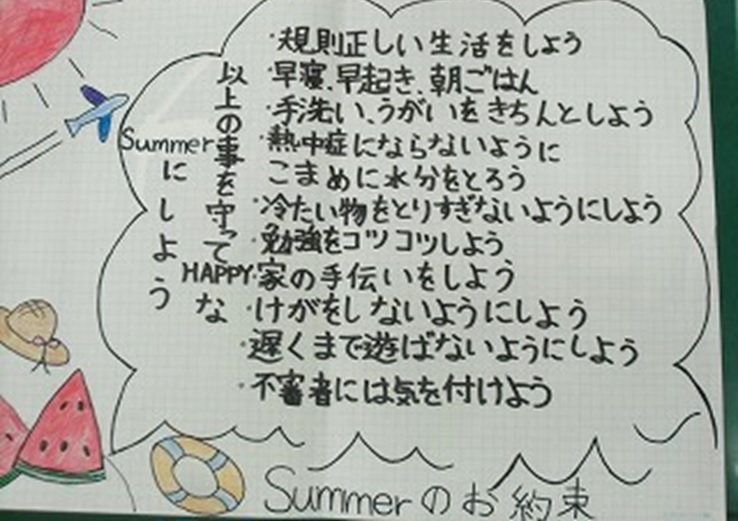 ・規則正しい生活をしよう
・早寝、早起き、朝ごはん
・手洗い、うがいをきちんとしよう
・熱中症にならないように
こまめに水分をとろう
・冷たい物をとりすぎないようにしよう
・勉強をコツコツしよう
・家の手伝いをしよう
・けがをしないようにしよう
・遅くまで遊ばないようにしよう
・不審者には気を付けよう
以上の事を守って
HAPPYな
Summerにしよう
Summerのお約束